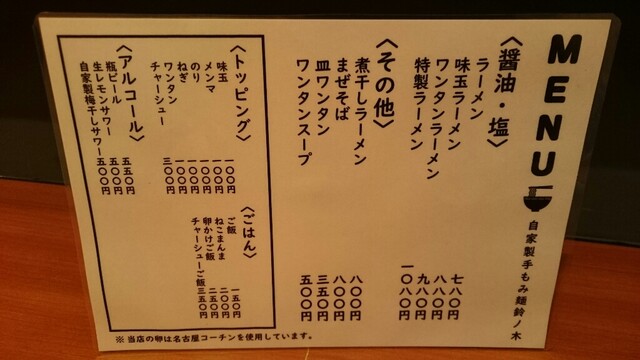 MENU
自家製手もみ麺鈴ノ木
〈醤油・塩〉
ラーメン 七八〇円
味玉ラーメン 八八〇円
ワンタンラーメン 九八〇円
特製ラーメン 一〇八〇円
〈その他〉
煮干しラーメン 八〇〇円
まぜそば 八〇〇円
皿ワンタン 三五〇円
ワンタンスープ 五〇〇円
〈トッピング〉
味玉 一〇〇円
メンマ 一〇〇円
のり 一〇〇円
ねぎ 一〇〇円
ワンタン 一〇〇円
チャーシュー 三〇〇円
〈ごはん〉
ご飯 一五〇円
ねこまんま 二〇〇円
卵かけご飯 二五〇円
チャーシューご飯 三五〇円
〈アルコール〉
瓶ビール 五五〇円
生レモンサワー 五〇〇円
自家製梅干しサワー 五〇〇円
※当店の卵は名古屋コーチンを使用しています。